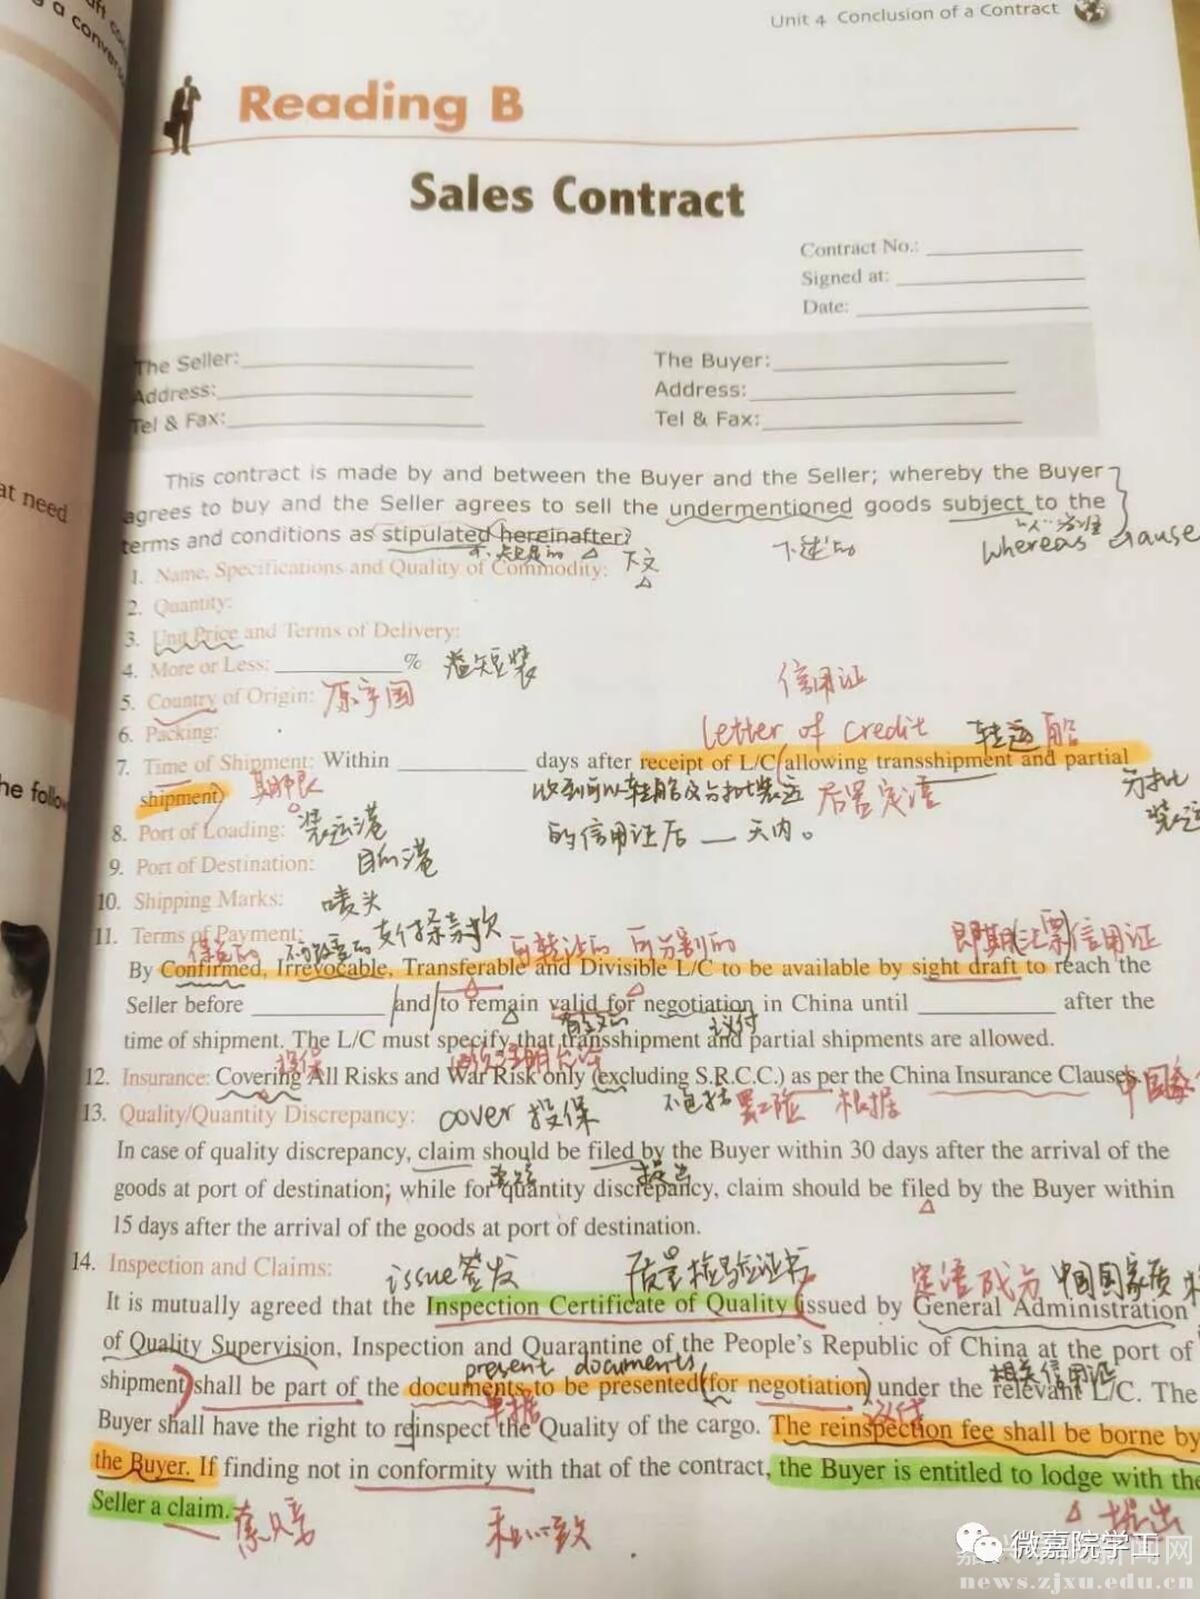 Unit 4 Conclusion of a Contract
Reading B
Sales Contract
Contract No.:
Signed at:
Date:
The Seller:
The Buyer:
Address:
Address:
Tel & Fax:
Tel & Fax:
This contract is made by and between the Buyer and the Seller; whereby the Buyer
agrees to buy and the Seller agrees to sell the undermentioned goods subject to the
terms and conditions as stipulated hereinafter:
下文
下述的
whereas clause
1. Name, Specifications and Quality of Commodity:
2. Quantity:
3. Unit Price and Terms of Delivery:
4. More or Less: %
溢短装
5. Country of Origin:
原产国
信用证
6. Packing:
letter of credit
转运 船
7. Time of Shipment: Within days after receipt of L/C allowing transshipment and partial
shipment
期限
收到可以转船及分批装运
后置定语
分批
装运
8. Port of Loading:
装运港
的信用证后 — 天内。
9. Port of Destination:
目的港
10. Shipping Marks:
唛头
11. Terms of Payment:
支付条款
保兑的
可转让的 可分割的
即期(汇票)信用证
By Confirmed, Irrevocable, Transferable and Divisible L/C to be available by sight draft to reach the
Seller before and to remain valid for negotiation in China until after the
有效的
议付
time of shipment. The L/C must specify that transshipment and partial shipments are allowed.
投保
12. Insurance: Covering All Risks and War Risk only (excluding S.R.C.C.) as per the China Insurance Clauses.
不包括
根据
中国
13. Quality/Quantity Discrepancy:
cover 投保
In case of quality discrepancy, claim should be filed by the Buyer within 30 days after the arrival of the
提出
goods at port of destination; while for quantity discrepancy, claim should be filed by the Buyer within
15 days after the arrival of the goods at port of destination.
14. Inspection and Claims:
issue 签发
质量检验证书
定语成分
中国国家质
It is mutually agreed that the Inspection Certificate of Quality issued by General Administration
of Quality Supervision, Inspection and Quarantine of the People's Republic of China at the port of
present documents
相关信用证
shipment shall be part of the documents to be presented for negotiation under the relevant L/C. The
单据
Buyer shall have the right to reinspect the Quality of the cargo. The reinspection fee shall be borne by
the Buyer. If finding not in conformity with that of the contract, the Buyer is entitled to lodge with the
Seller a claim.
索赔
和…一致
提出
微嘉院学工
嘉兴学院新闻网
news.zjxu.edu.cn